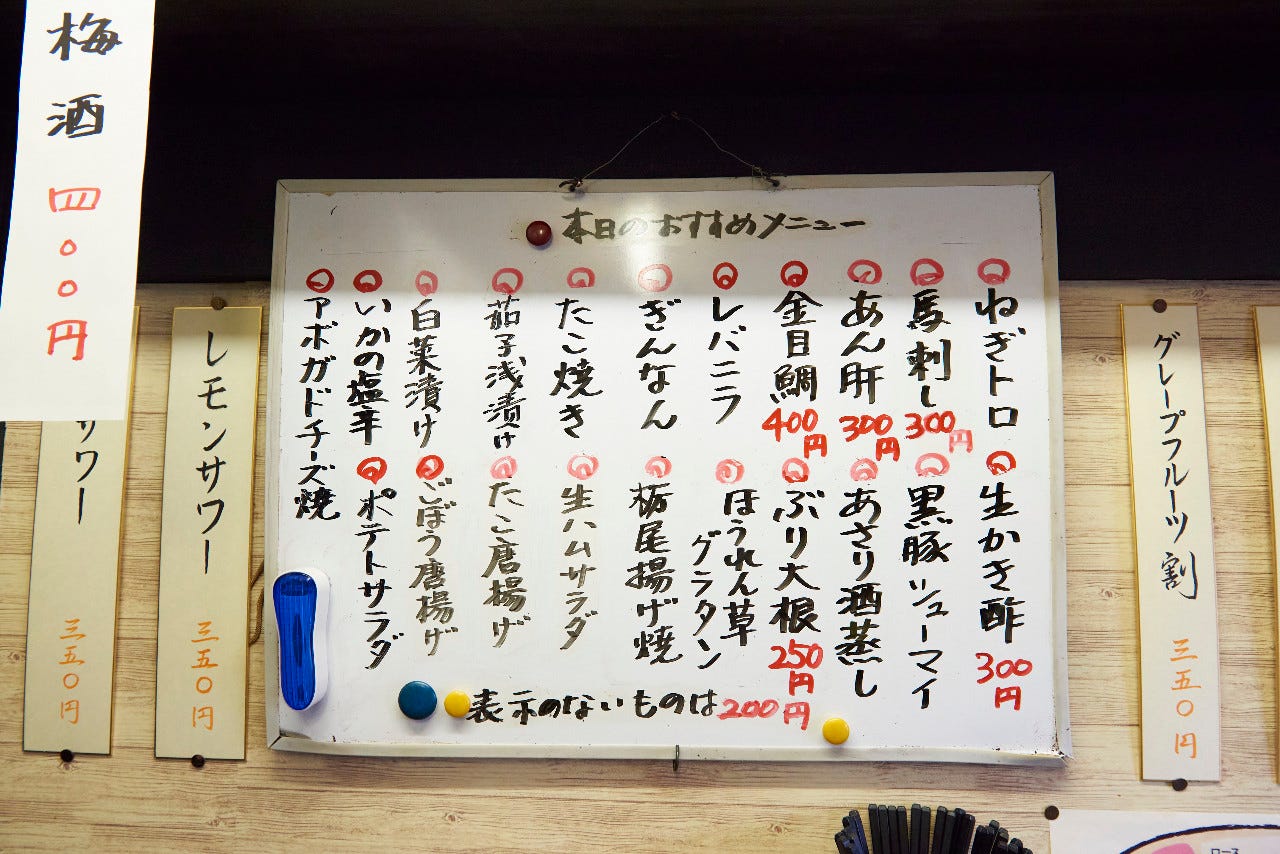 本日のおすすめメニュー
ねぎトロ
馬刺し 300円
あん肝 300円
金目鯛 400円
レバニラ
ぎんなん
たこ焼き
茄子浅漬け
白菜漬け
いかの塩辛
アボガドチーズ焼
生かき酢 300円
黒豚シューマイ
あさり酒蒸し
ぶり大根 250円
ほうれん草
グラタン
栃尾揚げ焼
生ハムサラダ
たこ唐揚げ
ごぼう唐揚げ
ポテトサラダ
表示のないものは200円
グレープフルーツ割 三五〇円
梅酒 四〇〇円
レモンサワー 三五〇円
サワー 三五〇円
ロース